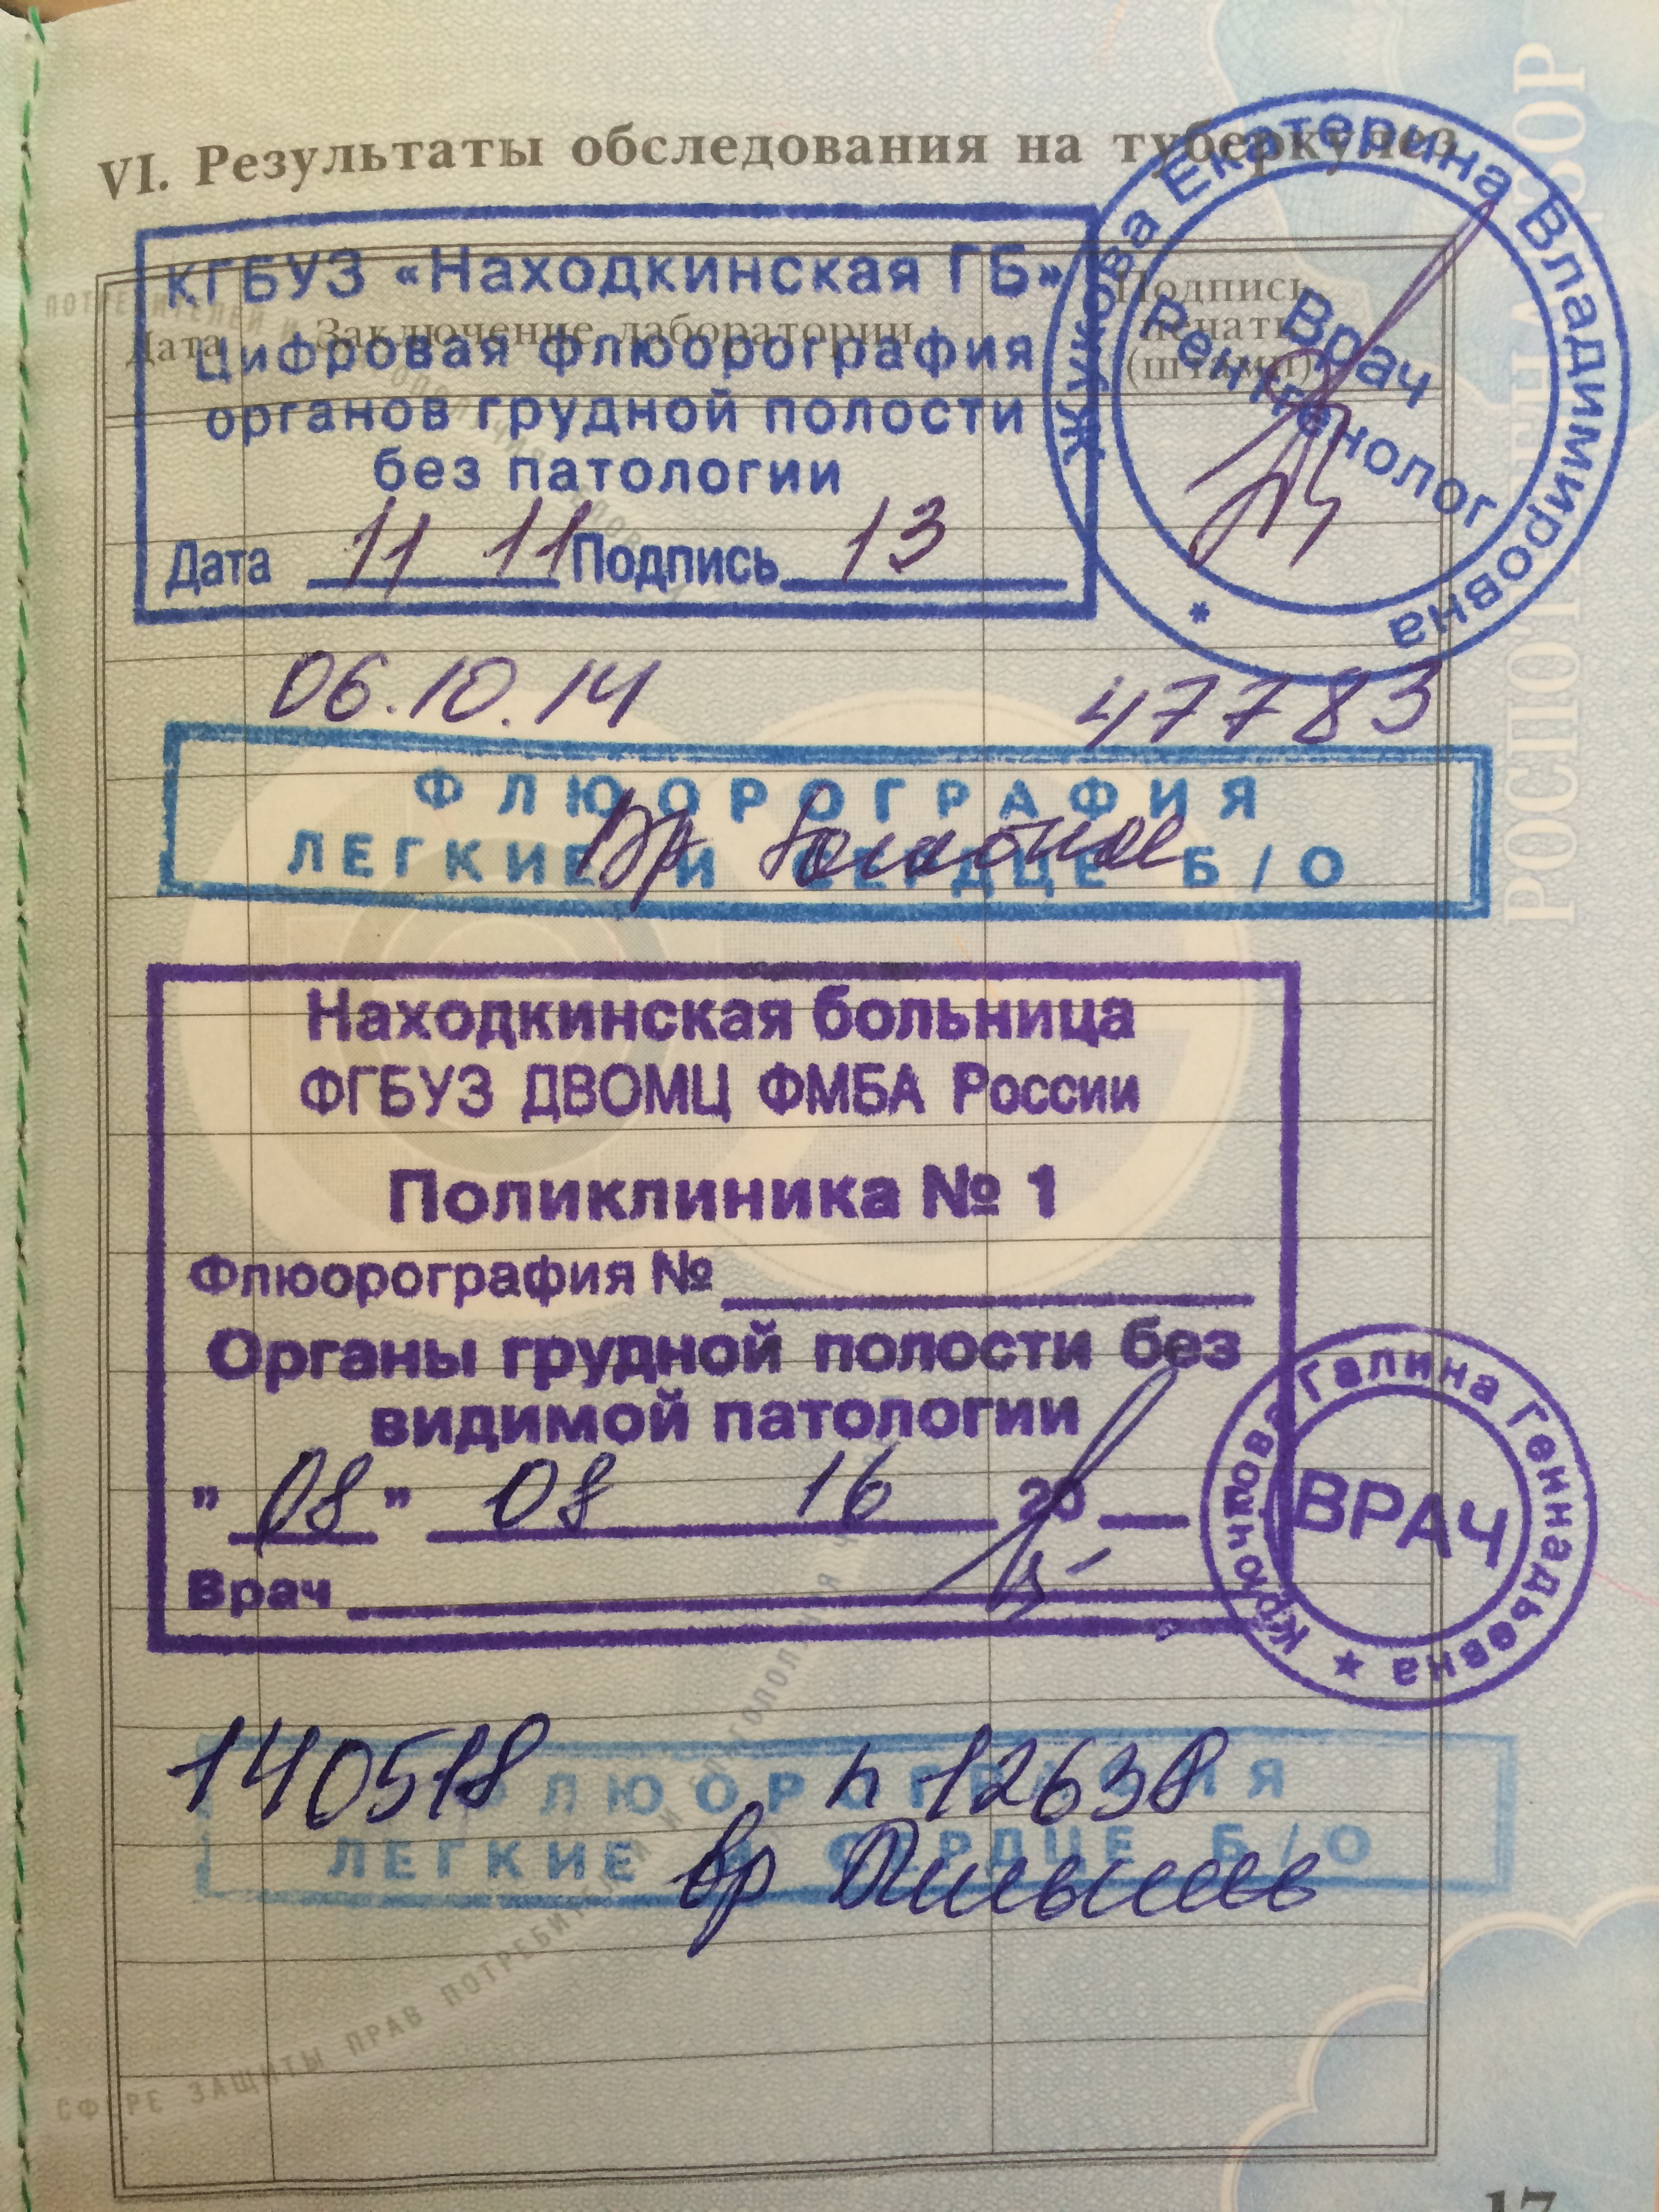 VI. Результаты обследования на туберкулез
Дата
Заключение лаборатории
Подпись,
печать
(штамп)
КГБУЗ «Находкинская ГБ»
Цифровая флюорография
органов грудной полости
без патологии
Дата 11 11 Подпись 13
Жукова Екатерина Владимировна *
Врач
Рентгенолог
06.10.14 47783
ФЛЮОРОГРАФИЯ
ЛЕГКИЕ И СЕРДЦЕ Б/О
Вр
Находкинская больница
ФГБУЗ ДВОМЦ ФМБА России
Поликлиника № 1
Флюорография №
Органы грудной полости без
видимой патологии
" 08 " 08 16 20
Врач
Крючкова Галина Геннадьевна ★
ВРАЧ
140518 n 12638
ФЛЮОРОГРАФИЯ
ЛЕГКИЕ И СЕРДЦЕ Б/О
вр
СФЕРЕ ЗАЩИТЫ ПРАВ ПОТРЕБИТЕЛЕЙ И БЛАГОПОЛУЧИЯ
РОСПОТРЕБНАДЗОР
17